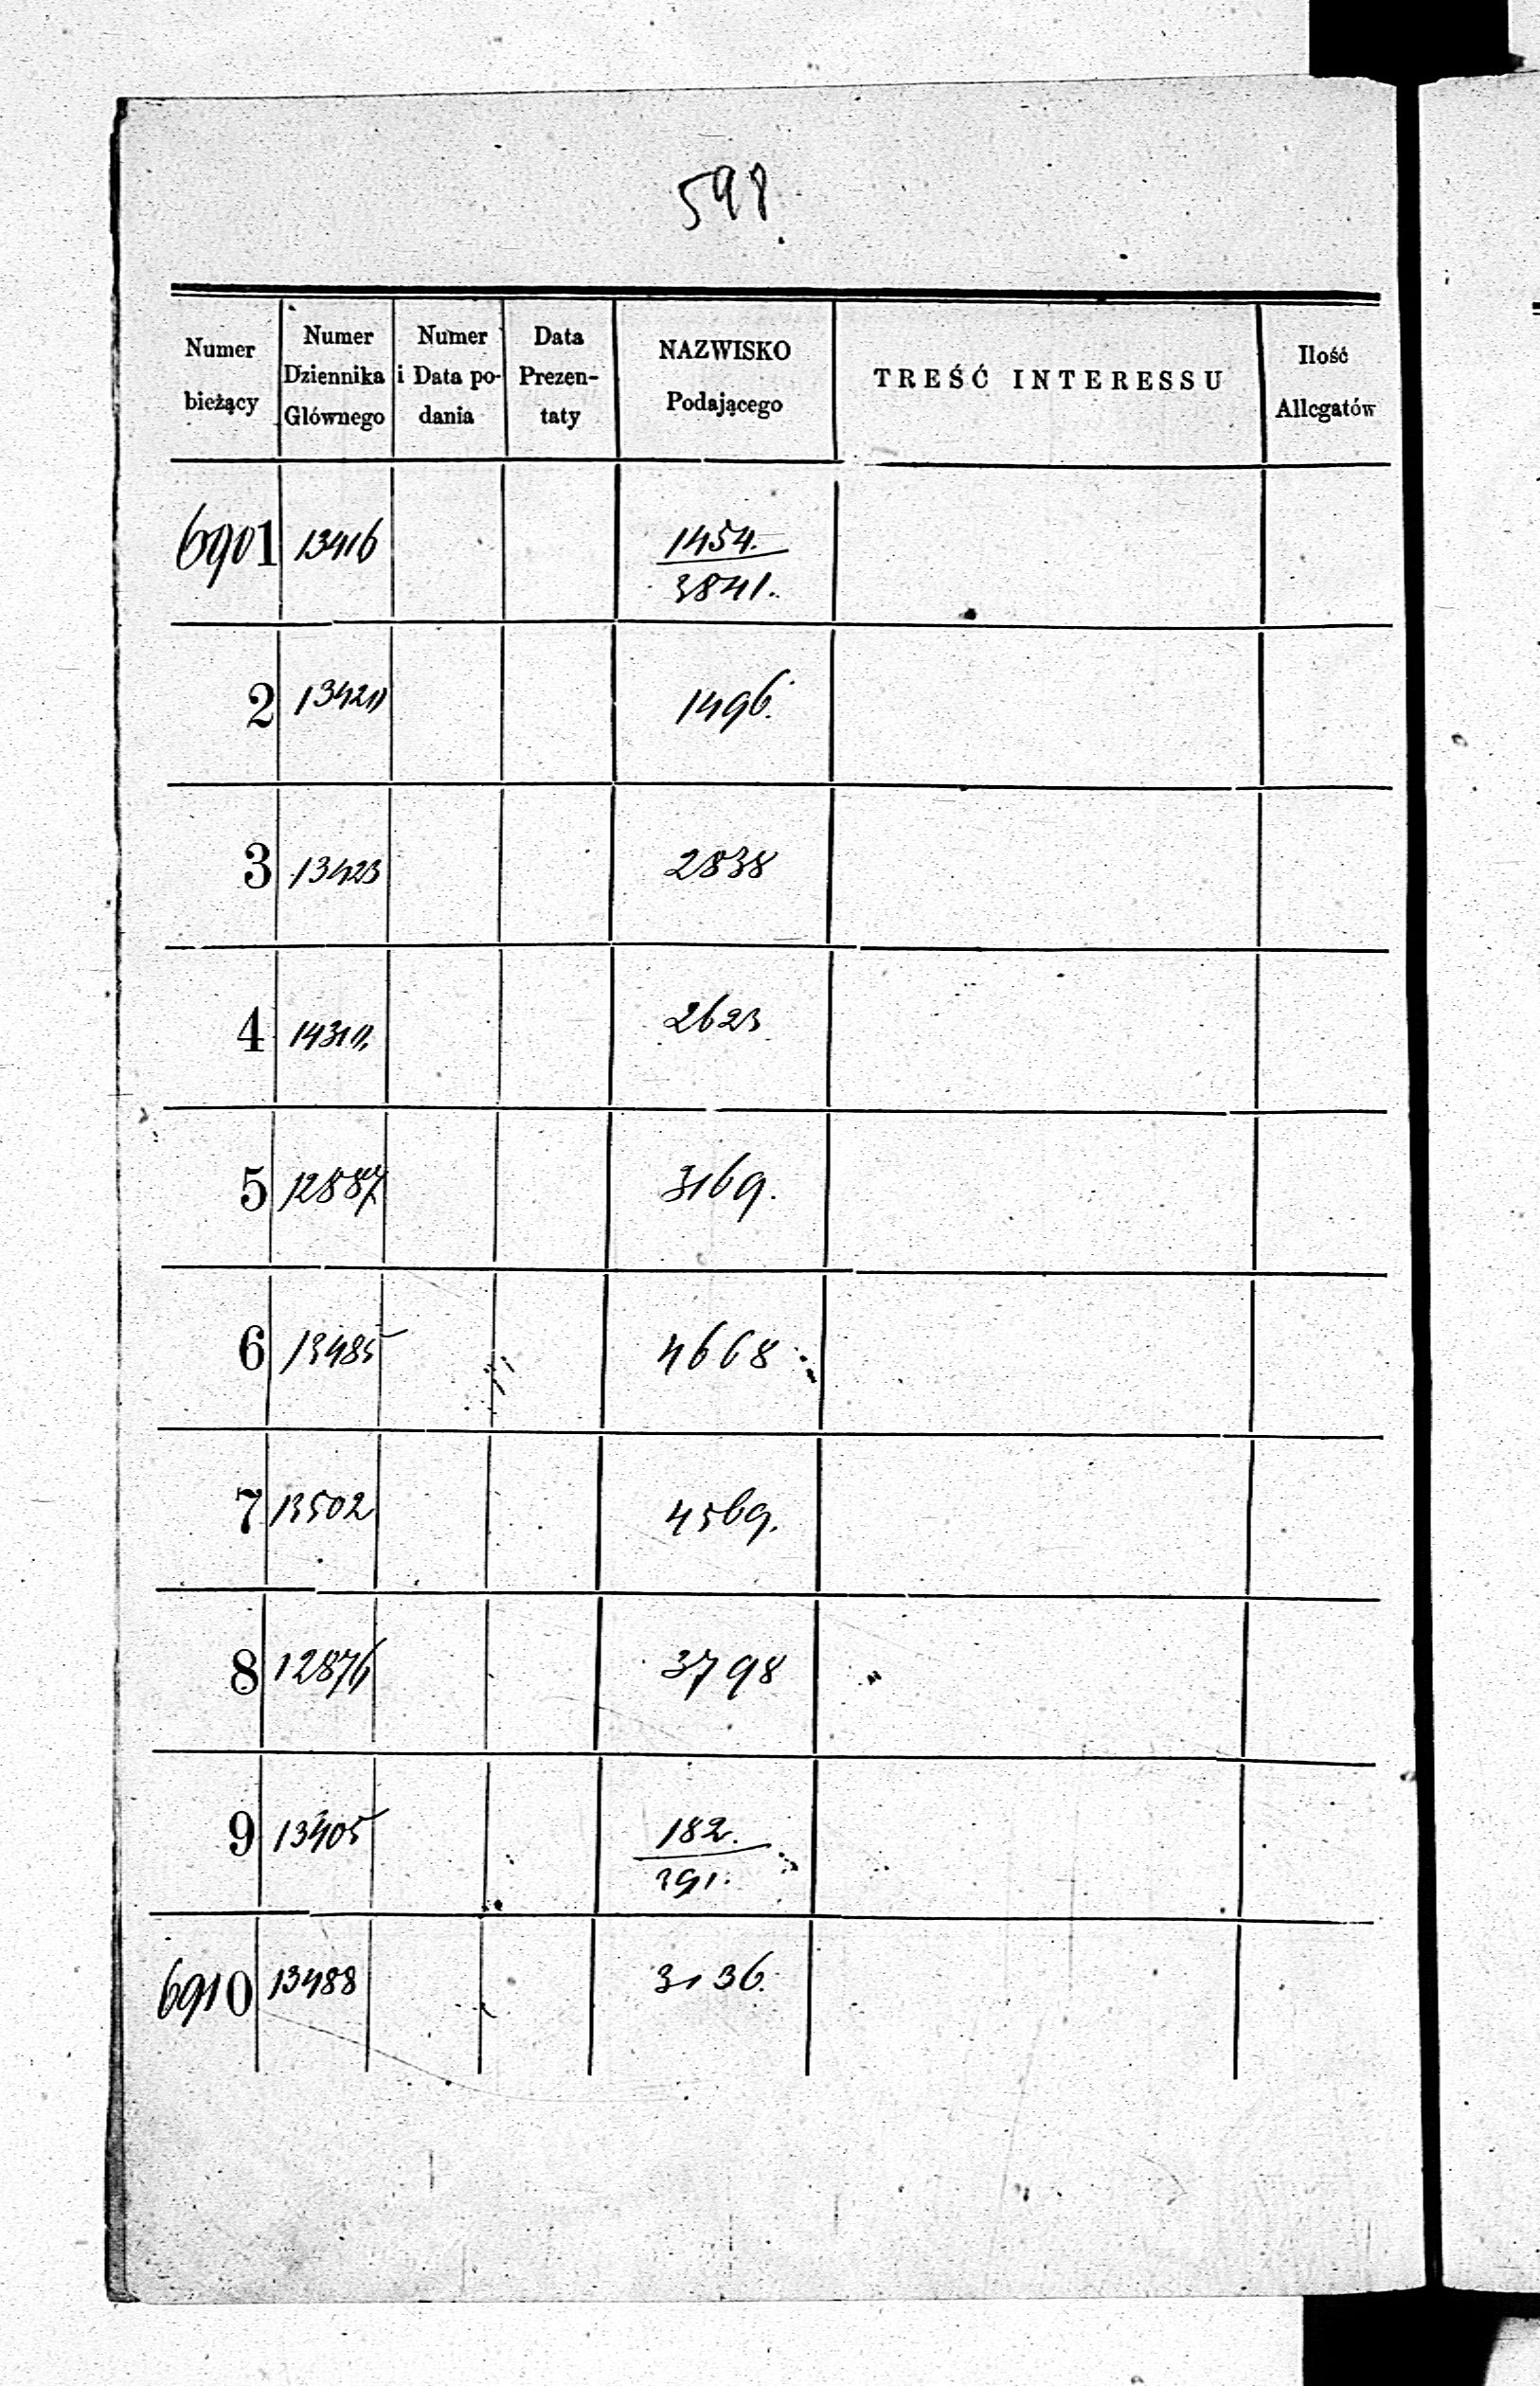 598.
Numer bieżący | Numer Dziennika Głównego | Numer i Data podania | Data Prezentaty | NAZWISKO Podającego | TREŚĆ INTERESSU | Ilość Allegatów
6901 | 13416 | 1454. / 3841.
2 | 13420 | 1496.
3 | 13423 | 2838
4 | 14310. | 2623
5 | 12887 | 3169.
6 | 13485 | 4668
7 | 13502 | 4569.
8 | 12876 | 3798
9 | 13405 | 182. / 391.
6910 | 13488 | 3136.